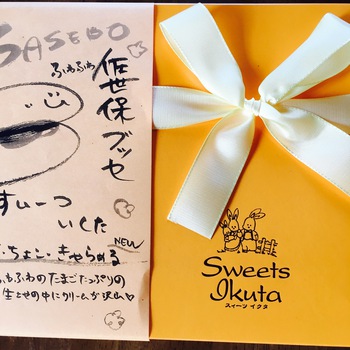 SASEBO
ふわふわ
佐世保ブッセ
すいーつ
いくた
ちょこ・きゃらめる
NEW
ふわふわのたまごたっぷりの
生とせの中にクリームが沢山♡
Sweets
Ikuta
スィーツ イクタ